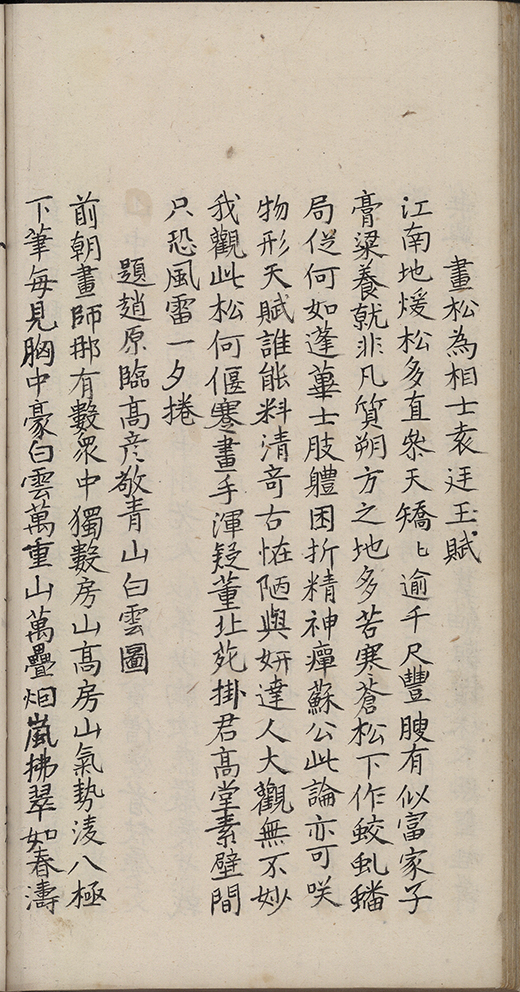 畫松為相士袁廷玉賦
江南地煖松多直叅天矯〻逾千尺豐腴有似富家子
膏粱養就非凡質朔方之地多苦寒蒼松下作蛟虬蟠
局促何如蓬蓽士肢體困折精神癉蘇公此論亦可咲
物形天賦誰能料清奇古恠陋與妍達人大觀無不妙
我觀此松何偃蹇畫手渾疑董北苑掛君高堂素壁間
只恐風雷一夕捲
題趙原臨高彥敬青山白雲圖
前朝畫師那有數衆中獨數房山高房山氣勢淩八極
下筆每見胸中豪白雲萬重山萬疊烟嵐拂翠如春濤